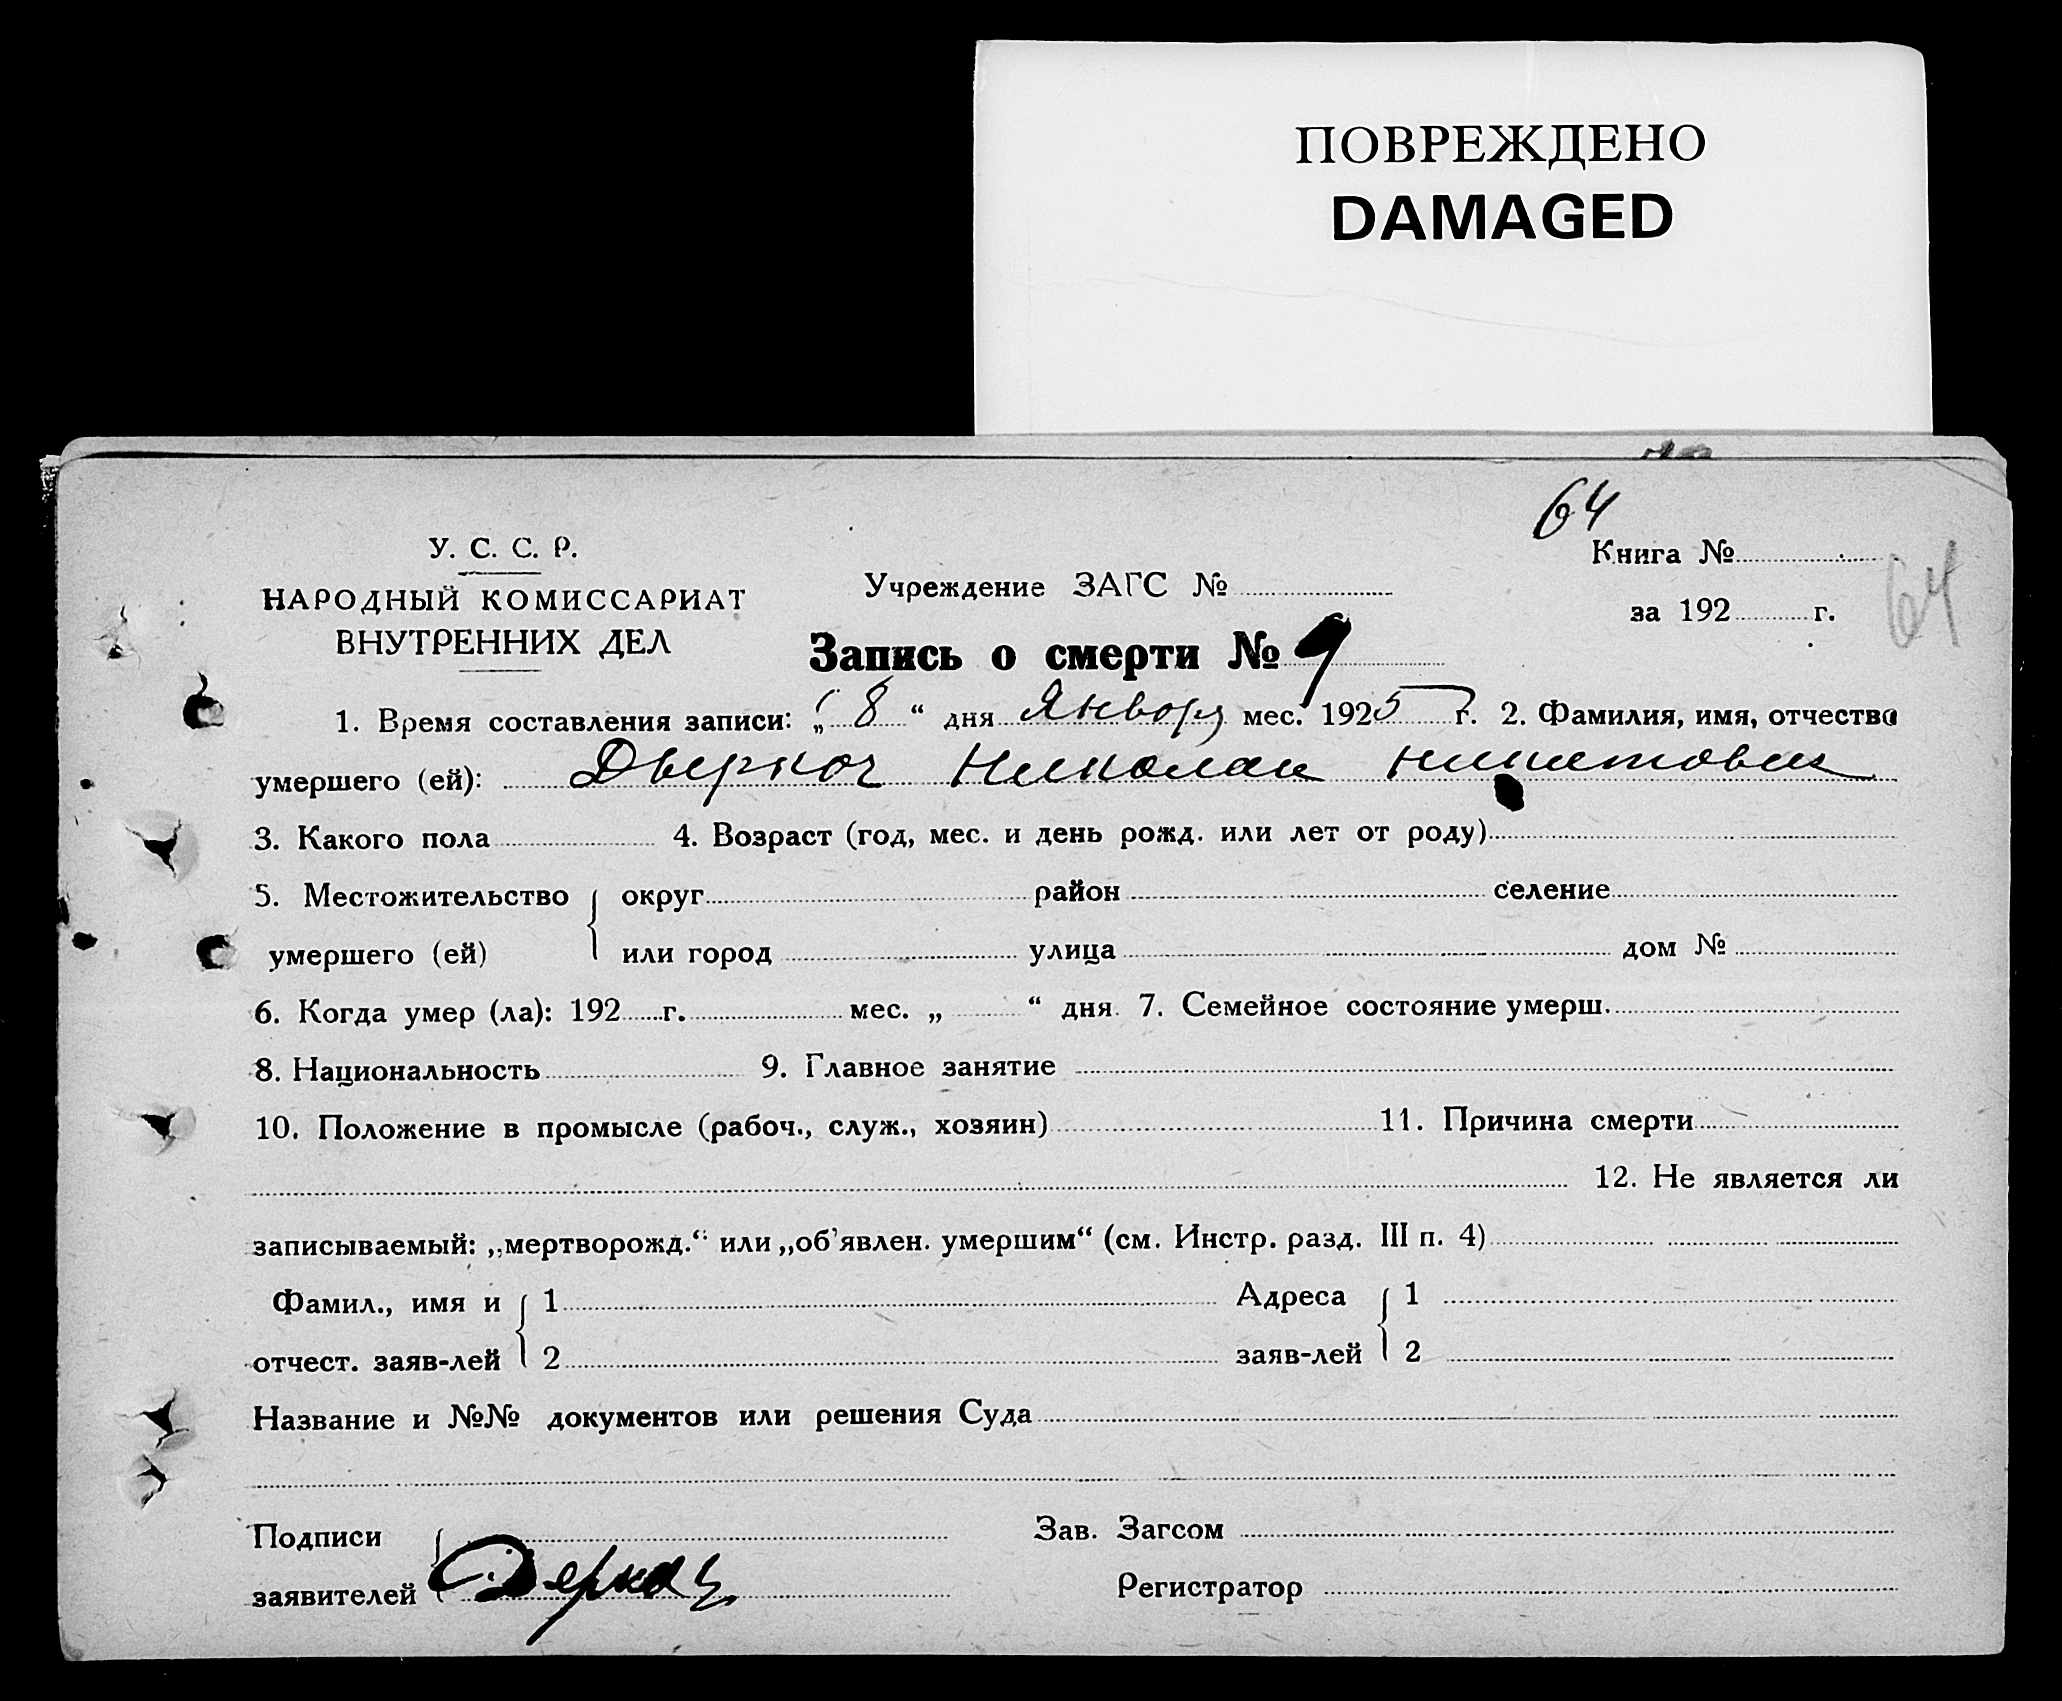 ПОВРЕЖДЕНО
DAMAGED
64
У. С. С. Р.
НАРОДНЫЙ КОМИССАРИАТ
ВНУТРЕННИХ ДЕЛ
Учреждение ЗАГС №
Книга №
за 192 г.
64
Запись о смерти № 9
1. Время составления записи: „ 8 “ дня Января мес. 1925 г. 2. Фамилия, имя, отчество
умершего (ей): Николай
3. Какого пола 4. Возраст (год, мес. и день рожд. или лет от роду)
5. Местожительство округ район селение
умершего (ей) или город улица дом №
6. Когда умер (ла): 192 г. мес. „ “ дня 7. Семейное состояние умерш.
8. Национальность 9. Главное занятие
10. Положение в промысле (рабоч., служ., хозяин) 11. Причина смерти
12. Не является ли
записываемый: „мертворожд.“ или „об'явлен. умершим“ (см. Инстр. разд. III п. 4)
Фамил., имя и 1 Адреса 1
отчест. заяв-лей 2 заяв-лей 2
Название и №№ документов или решения Суда
Подписи Зав. Загсом
заявителей Деркач Регистратор